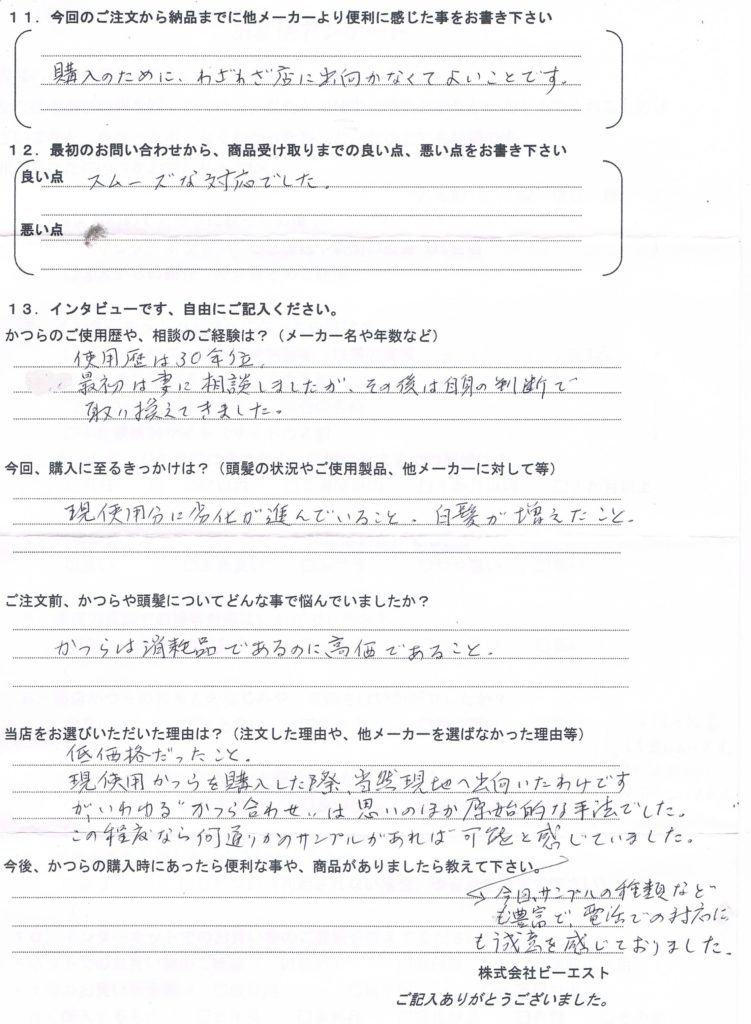 11．今回のご注文から納品までに他メーカーより便利に感じた事をお書き下さい
購入のために、わざわざ店に出向かなくてよいことです。
12．最初のお問い合わせから、商品受け取りまでの良い点、悪い点をお書き下さい
良い点 スムーズな対応でした。
悪い点
13．インタビューです、自由にご記入ください。
かつらのご使用歴や、相談のご経験は？（メーカー名や年数など）
使用歴は30年位、
最初は妻に相談しましたが、その後は自身の判断で
取り換えてきました。
今回、購入に至るきっかけは？（頭髪の状況やご使用製品、他メーカーに対して等）
現使用分に劣化が進んでいること。白髪が増えたこと。
ご注文前、かつらや頭髪についてどんな事で悩んでいましたか？
かつらは消耗品であるのに高価であること。
当店をお選びいただいた理由は？（注文した理由や、他メーカーを選ばなかった理由等）
低価格だったこと。
現使用かつらを購入した際、当然現地へ出向いたわけです
が、いわゆる"かつら合わせ"は思いのほか原始的な手法でした。
この程度なら何通りかのサンプルがあれば可能と感じていました。
今後、かつらの購入時にあったら便利な事や、商品がありましたら教えて下さい。
今回、サンプルの種類など
も豊富で、電話での対応に
も誠意を感じておりました。
株式会社ビーエスト
ご記入ありがとうございました。